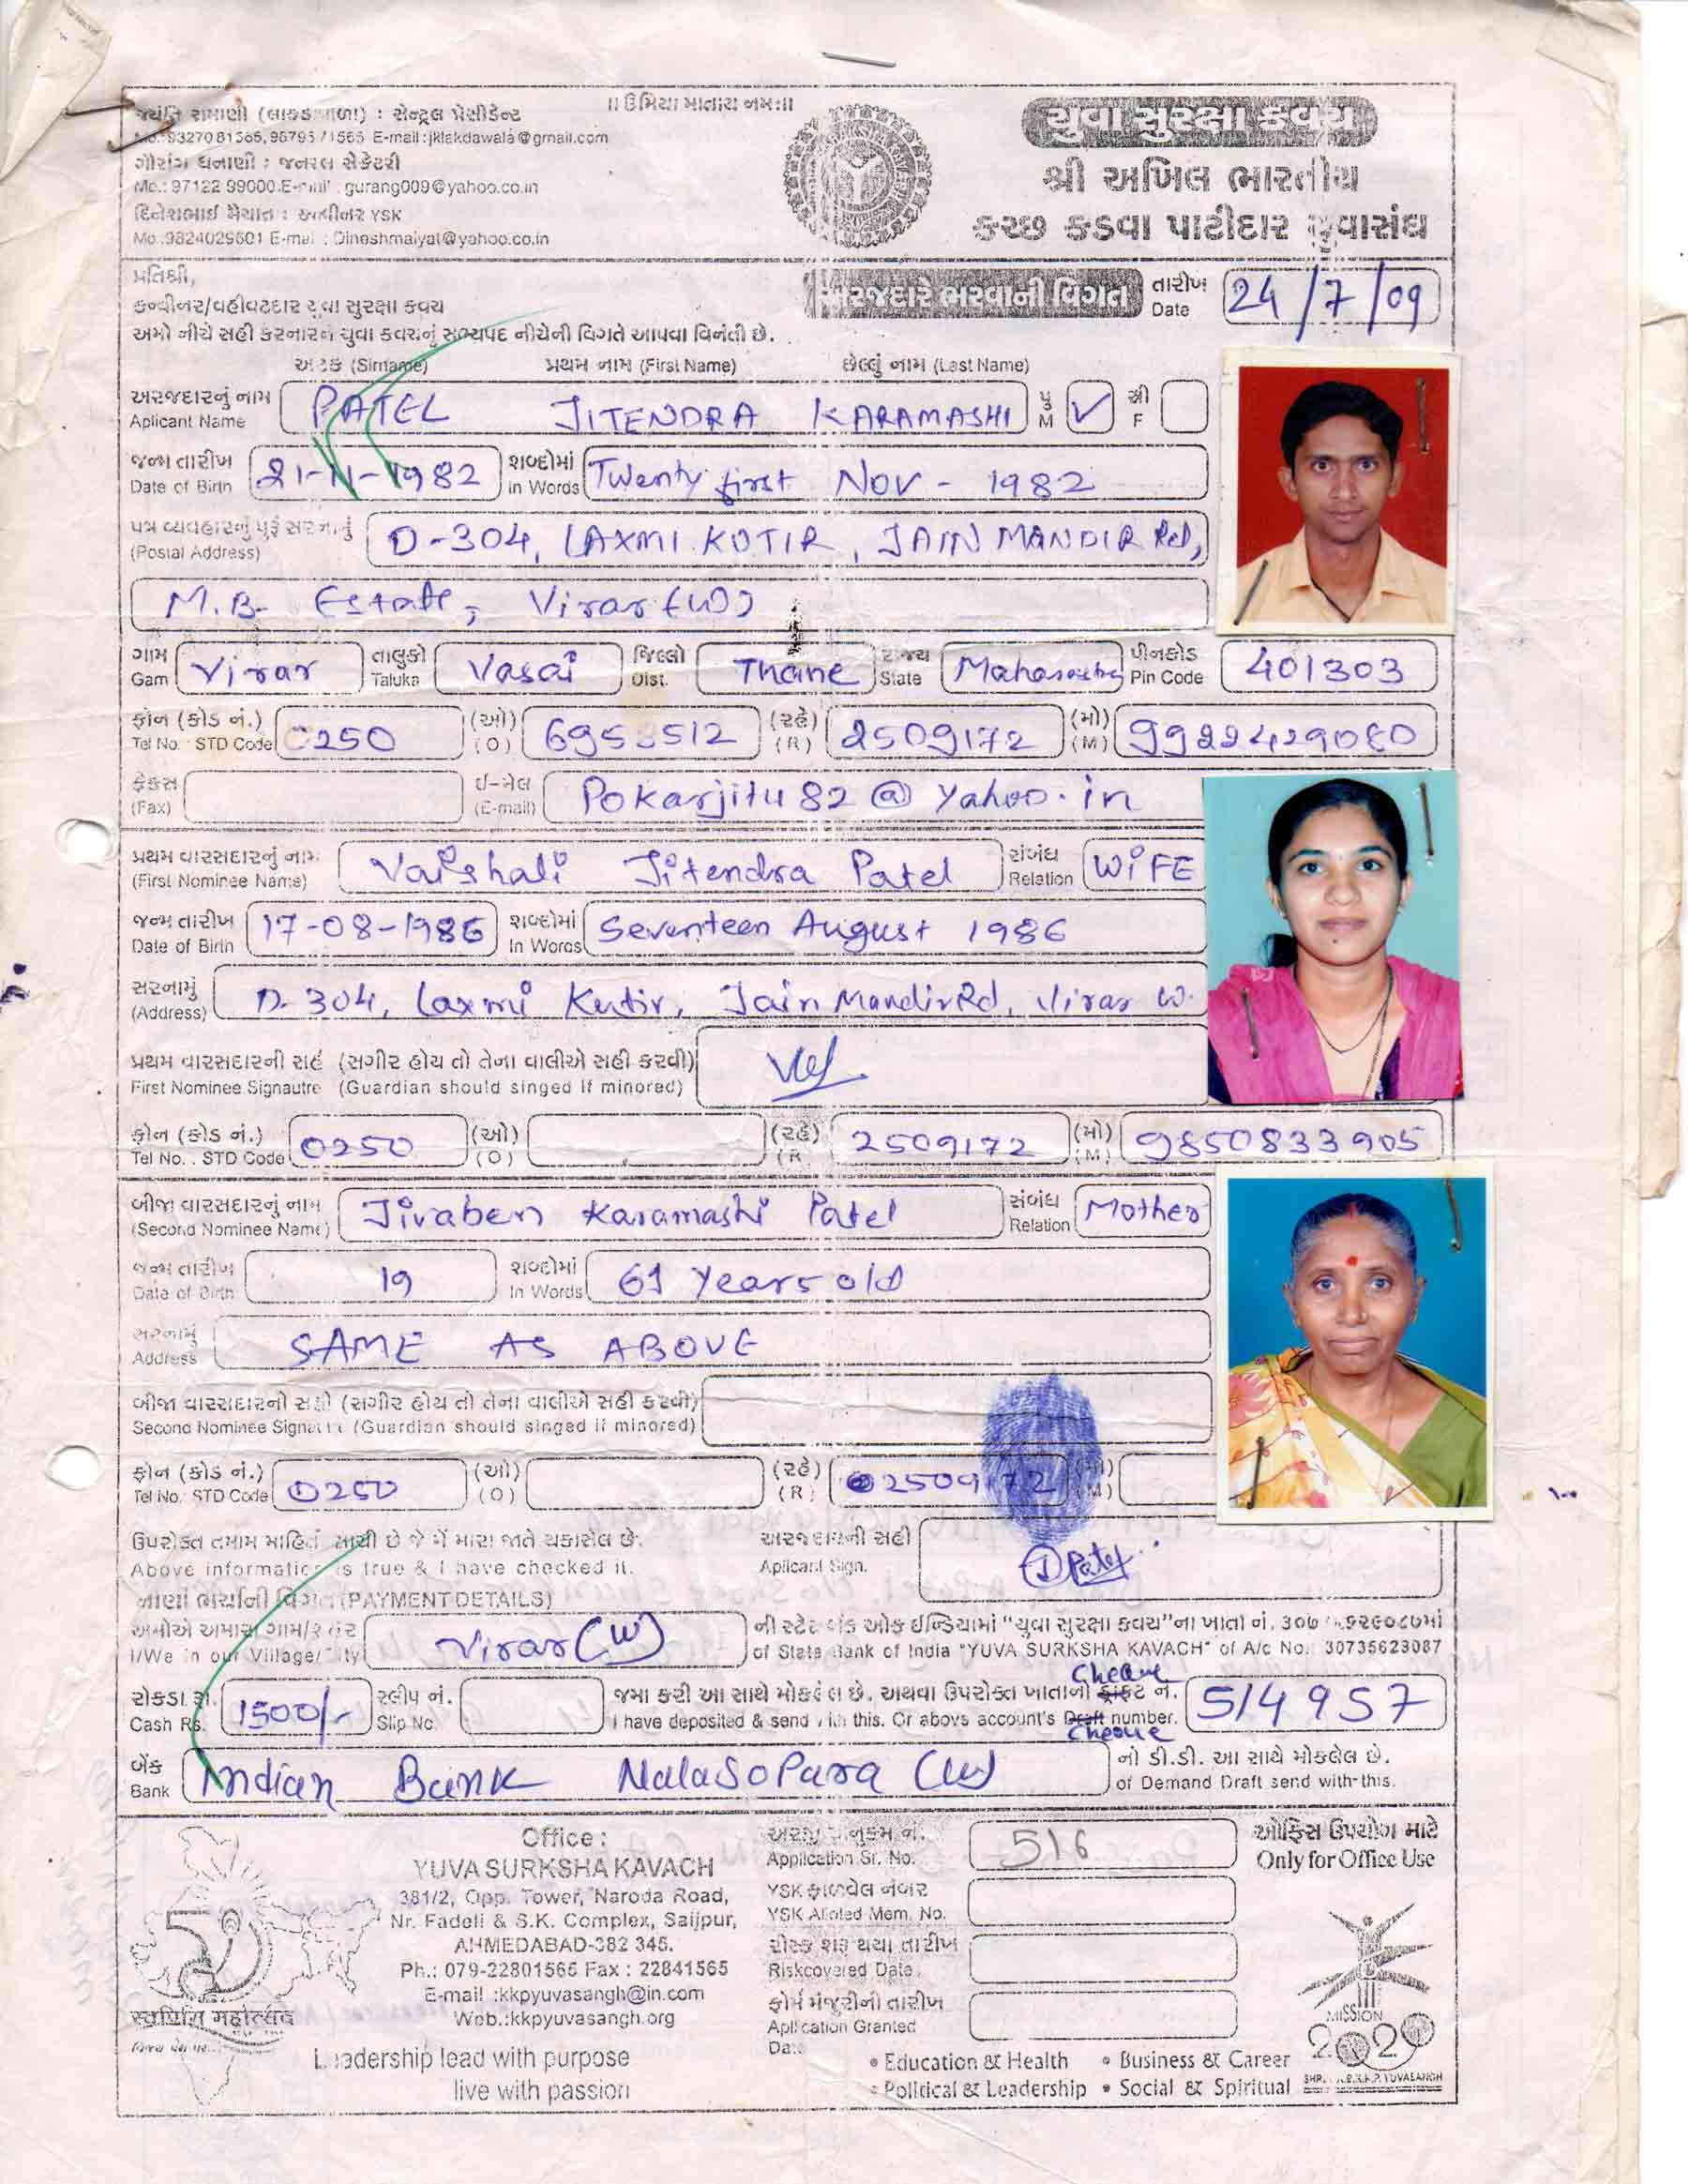 જયંતિ રામાણી (લાકડાવાળા) : સેન્ટ્રલ પ્રેસીડેન્ટ
E-mail :jklakdawala@gmail.com
ગૌરાંગ ધનાણી : જનરલ સેક્રેટરી
Mo.: 97122 99000 E-mail : gurang009@yahoo.co.in
દિનેશભાઈ મૈયાત : કન્વીનર YSK
Mo.:9824029501 E-mail : Dineshmaiyat@yahoo.co.in
॥ ઉમિયા માતાય નમઃ॥
યુવા સુરક્ષા કવચ
શ્રી અખિલ ભારતીય
કચ્છ કડવા પાટીદાર યુવાસંઘ
પ્રતિશ્રી,
કન્વીનર/વહીવટદાર યુવા સુરક્ષા કવચ
અમો નીચે સહી કરનારને યુવા કવચનું સભ્યપદ નીચેની વિગતે આપવા વિનંતી છે.
અરજદારે ભરવાની વિગત
તારીખ Date 24/7/09
અટક (Sirname) પ્રથમ નામ (First Name) છેલ્લું નામ (Last Name)
અરજદારનું નામ Aplicant Name PATEL JITENDRA KARAMASHI પુ M ✓ સ્ત્રી F
જન્મ તારીખ Date of Birth 21-11-1982 શબ્દોમાં In Words Twenty first Nov - 1982
પત્ર વ્યવહારનું પુરૂં સરનામું (Postal Address) D-304, LAXMI KUTIR, JAIN MANDIR Rd,
M.B. Estate, Virar (W)
ગામ Gam Virar તાલુકો Taluka Vasai જિલ્લો Dist. Thane રાજ્ય State Maharashtra પીનકોડ Pin Code 401303
ફોન (કોડ નં.) Tel No. STD Code 0250 (ઓ) (O) (રહે) (R) 2509172 (મો) (M)
ફેક્સ (Fax) ઈ-મેલ (E-mail) Pokarjitu82@yahoo.in
પ્રથમ વારસદારનું નામ (First Nominee Name) Vaishali Jitendra Patel સંબંધ Relation WIFE
જન્મ તારીખ Date of Birth 17-08-1986 શબ્દોમાં In Words Seventeen August 1986
સરનામું (Address) D-304, Laxmi Kutir, Jain Mandir Rd, Virar W.
પ્રથમ વારસદારની સહી (સગીર હોય તો તેના વાલીએ સહી કરવી)
First Nominee Signautre (Guardian should singed if minored)
ફોન (કોડ નં.) Tel No. . STD Code 0250 (ઓ) (O) (રહે) (R 2509172 (મો) (M) 9850833905
બીજા વારસદારનું નામ (Second Nominee Name) Jivaben Karamashi Patel સંબંધ Relation Mother
જન્મ તારીખ Date of Birth 19 શબ્દોમાં In Words 61 years old
સરનામું Address SAME AS ABOVE
બીજા વારસદારની સહી (સગીર હોય તો તેના વાલીએ સહી કરવી)
Second Nominee Signautre (Guardian should singed if minored)
ફોન (કોડ નં.) Tel No. STD Code 0250 (ઓ) (O) (રહે) (R) 2509172 (મો) (M)
ઉપરોક્ત તમામ માહિતી સાચી છે જે મેં મારા જાતે ચકાસેલ છે.
Above information is true & I have checked it.
અરજદારની સહી Aplicant Sign. Patel
નાણાં ભર્યાની વિગત (PAYMENT DETAILS)
અમોએ અમારા ગામ/શહેર Virar (W) ની સ્ટેટ બેંક ઓફ ઈન્ડિયામાં "યુવા સુરક્ષા કવચ"ના ખાતા નં.
I/We in our Village/City of State Bank of India "YUVA SURKSHA KAVACH" of A/c No. 30735623087
Cheque
રોકડા રૂા. Cash Rs. 1500/- સ્લીપ નં. Slip No. જમા કરી આ સાથે મોકલેલ છે. અથવા ઉપરોક્ત ખાતાનો ડ્રાફ્ટ નં. 514957
I have deposited & send with this. Or above account's Draft number.
Cheque
બેંક Bank Indian Bank Nalasopara (W) નો ડી.ડી. આ સાથે મોકલેલ છે.
of Demand Draft send with-this.
Office :
YUVA SURKSHA KAVACH
381/2, Opp. Tower, Naroda Road,
Nr. Fadeli & S.K. Complex, Saijpur,
AHMEDABAD-382 345.
Ph.: 079-22801565 Fax : 22841565
E-mail :kkpyuvasangh@in.com
Web.:kkpyuvasangh.org
Leadership lead with purpose
live with passion
50
स्वर्णिम महोत्सव
અરજી અનુક્રમ નં. Application Sr. No. 516
YSK ફાળવેલ નંબર YSK Alloted Mem. No.
રીસ્ક શરૂ થયા તારીખ Riskcovered Date.
ફોર્મ મંજુરીની તારીખ Aplication Granted Date
ઓફિસ ઉપયોગ માટે
Only for Office Use
MISSION
2020
• Education & Health • Business & Career
• Political & Leadership • Social & Spiritual